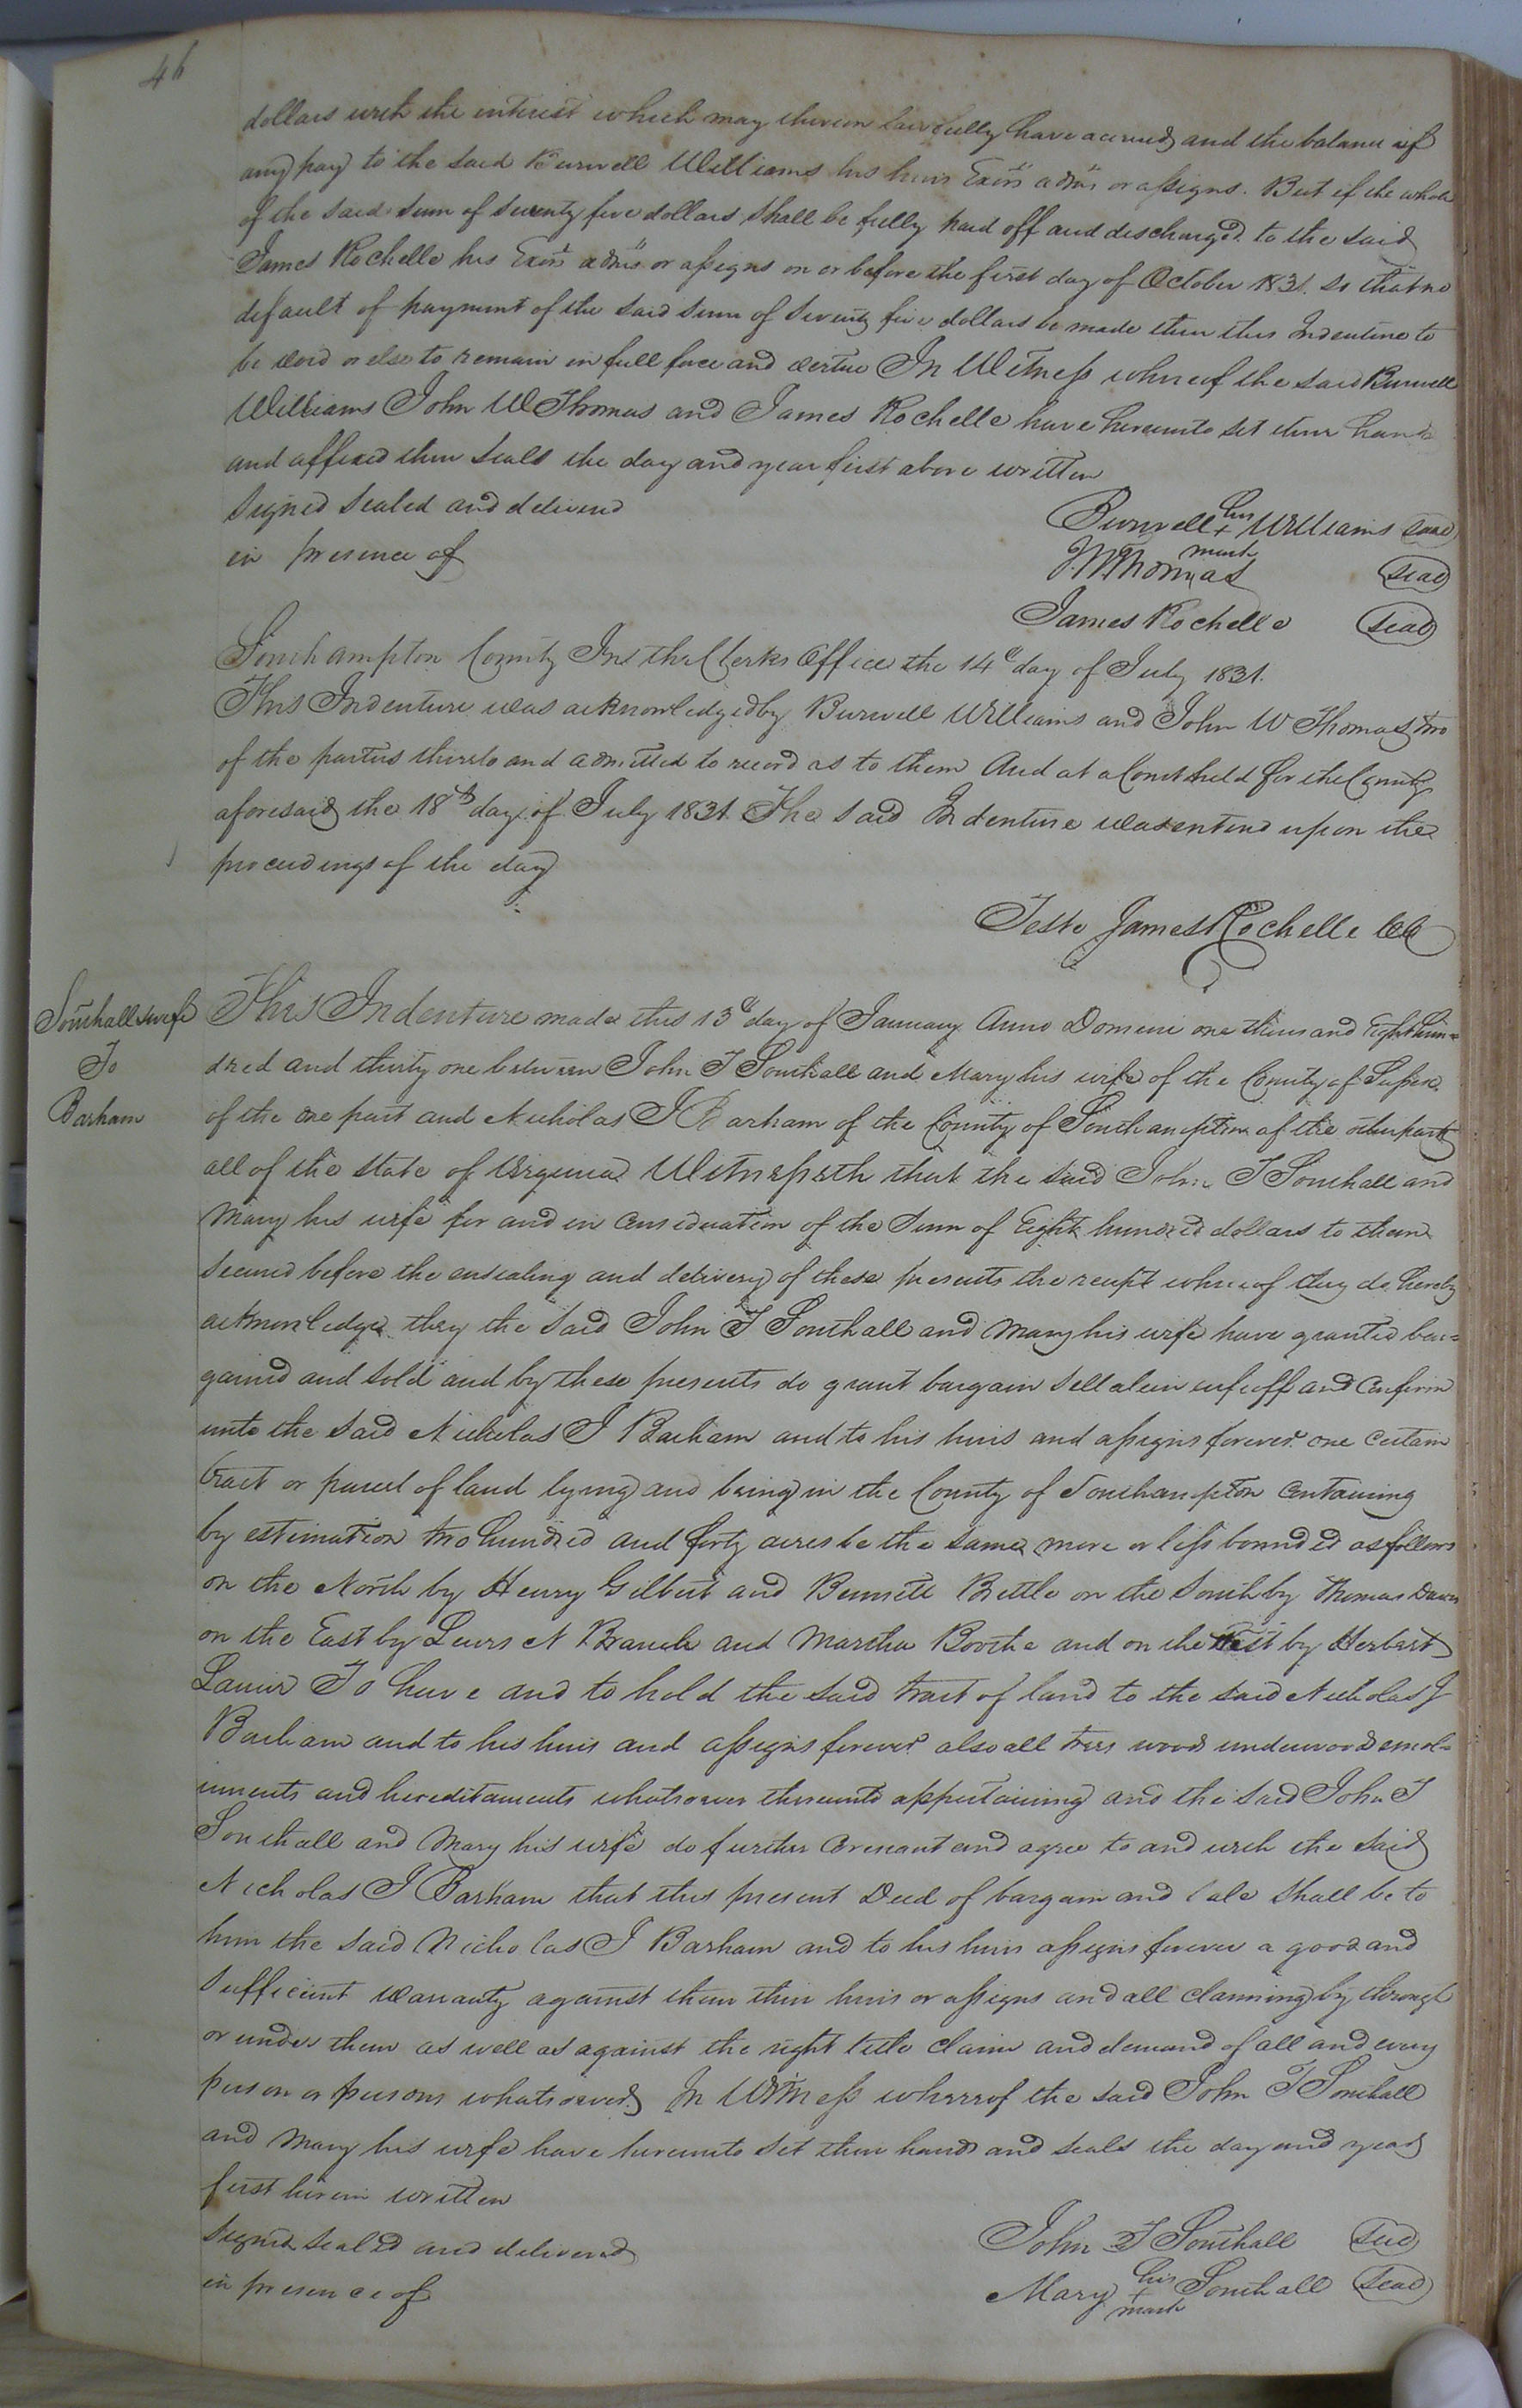 46
dollars with the interest which may thereon lawfully have accrued and the balance if
any pay to the said Burwell Williams his heirs Exōrs admrs or assigns. But if the whole
of the said sum of seventy five dollars shall be fully paid off and discharged to the said
James Rochelle his Exōrs admrs or assigns on or before the first day of October 1831. so that no
default of payment of the said sum of seventy five dollars be made then this Indenture to
be void or else to remain in full force and vertue In Witness whereof the said Burwell
Williams John W Thomas and James Rochelle have hereunto set their hands
and affixed their seals the day and year first above written
Signed sealed and delivered
in presence of
Burwell his + mark Williams seal
J.W.Thomas seal
James Rochelle seal
Southampton County In the Clerks Office the 14th day of July 1831.
This Indenture was acknowledged by Burwell Williams and John W Thomas two
of the parties thereto and admitted to record as to them And at a Court held for the County
aforesaid the 18th day of July 1831. The said Indenture was entered upon the
proceedings of the day
Teste James Rochelle CC
Southall & wife
To
Barham
This Indenture made this 13th day of January Anno Domini one thousand Eight hun=
dred and thirty one between John T Southall and Mary his wife of the County of Sussex
of the one part and Nicholas J Barham of the County of Southampton of the other part
all of the State of Virginia Witnesseth that the said John T Southall and
Mary his wife for and in consideration of the Sum of Eight hundred dollars to them
secured before the ensealing and delivery of these presents the receipt whereof they do hereby
acknowledge they the said John T Southall and Mary his wife have granted bar=
gained and sold and by these presents do grant bargain sell alein enfeoff and confirm
unto the said Nicholas J Barham and to his heirs and assigns forever one certain
tract or parcel of land lying and being in the County of Southampton containing
by estimation two hundred and forty acres be the same more or less bounded as follows
on the North by Henry Gilbert and Bennett Brittle on the South by Thomas Davis
on the East by Lewis N Branch and Martha Boothe and on the West by Herbert
Lanier To have and to hold the said tract of land to the said Nicholas J
Barham and to his heirs and assigns forever also all trees woods underwoods emol=
uments and hereditaments whatsoever thereunto appertaining and the said John T
Southall and Mary his wife do further covenant and agree to and with the said
Nicholas J Barham that this present Deed of bargain and sale shall be to
him the said Nicholas J Barham and to his heirs assigns forever a good and
sufficient warranty against them their heirs or assigns and all claiming by through
or under them as well as against the right title claim and demand of all and every
person or persons whatsoever In Witness whereof the said John T Southall
and Mary his wife have hereunto set their hands and seals the day and year
first herein written
Signed sealed and delivered
in presence of
John T Southall seal
Mary his + mark Southall seal